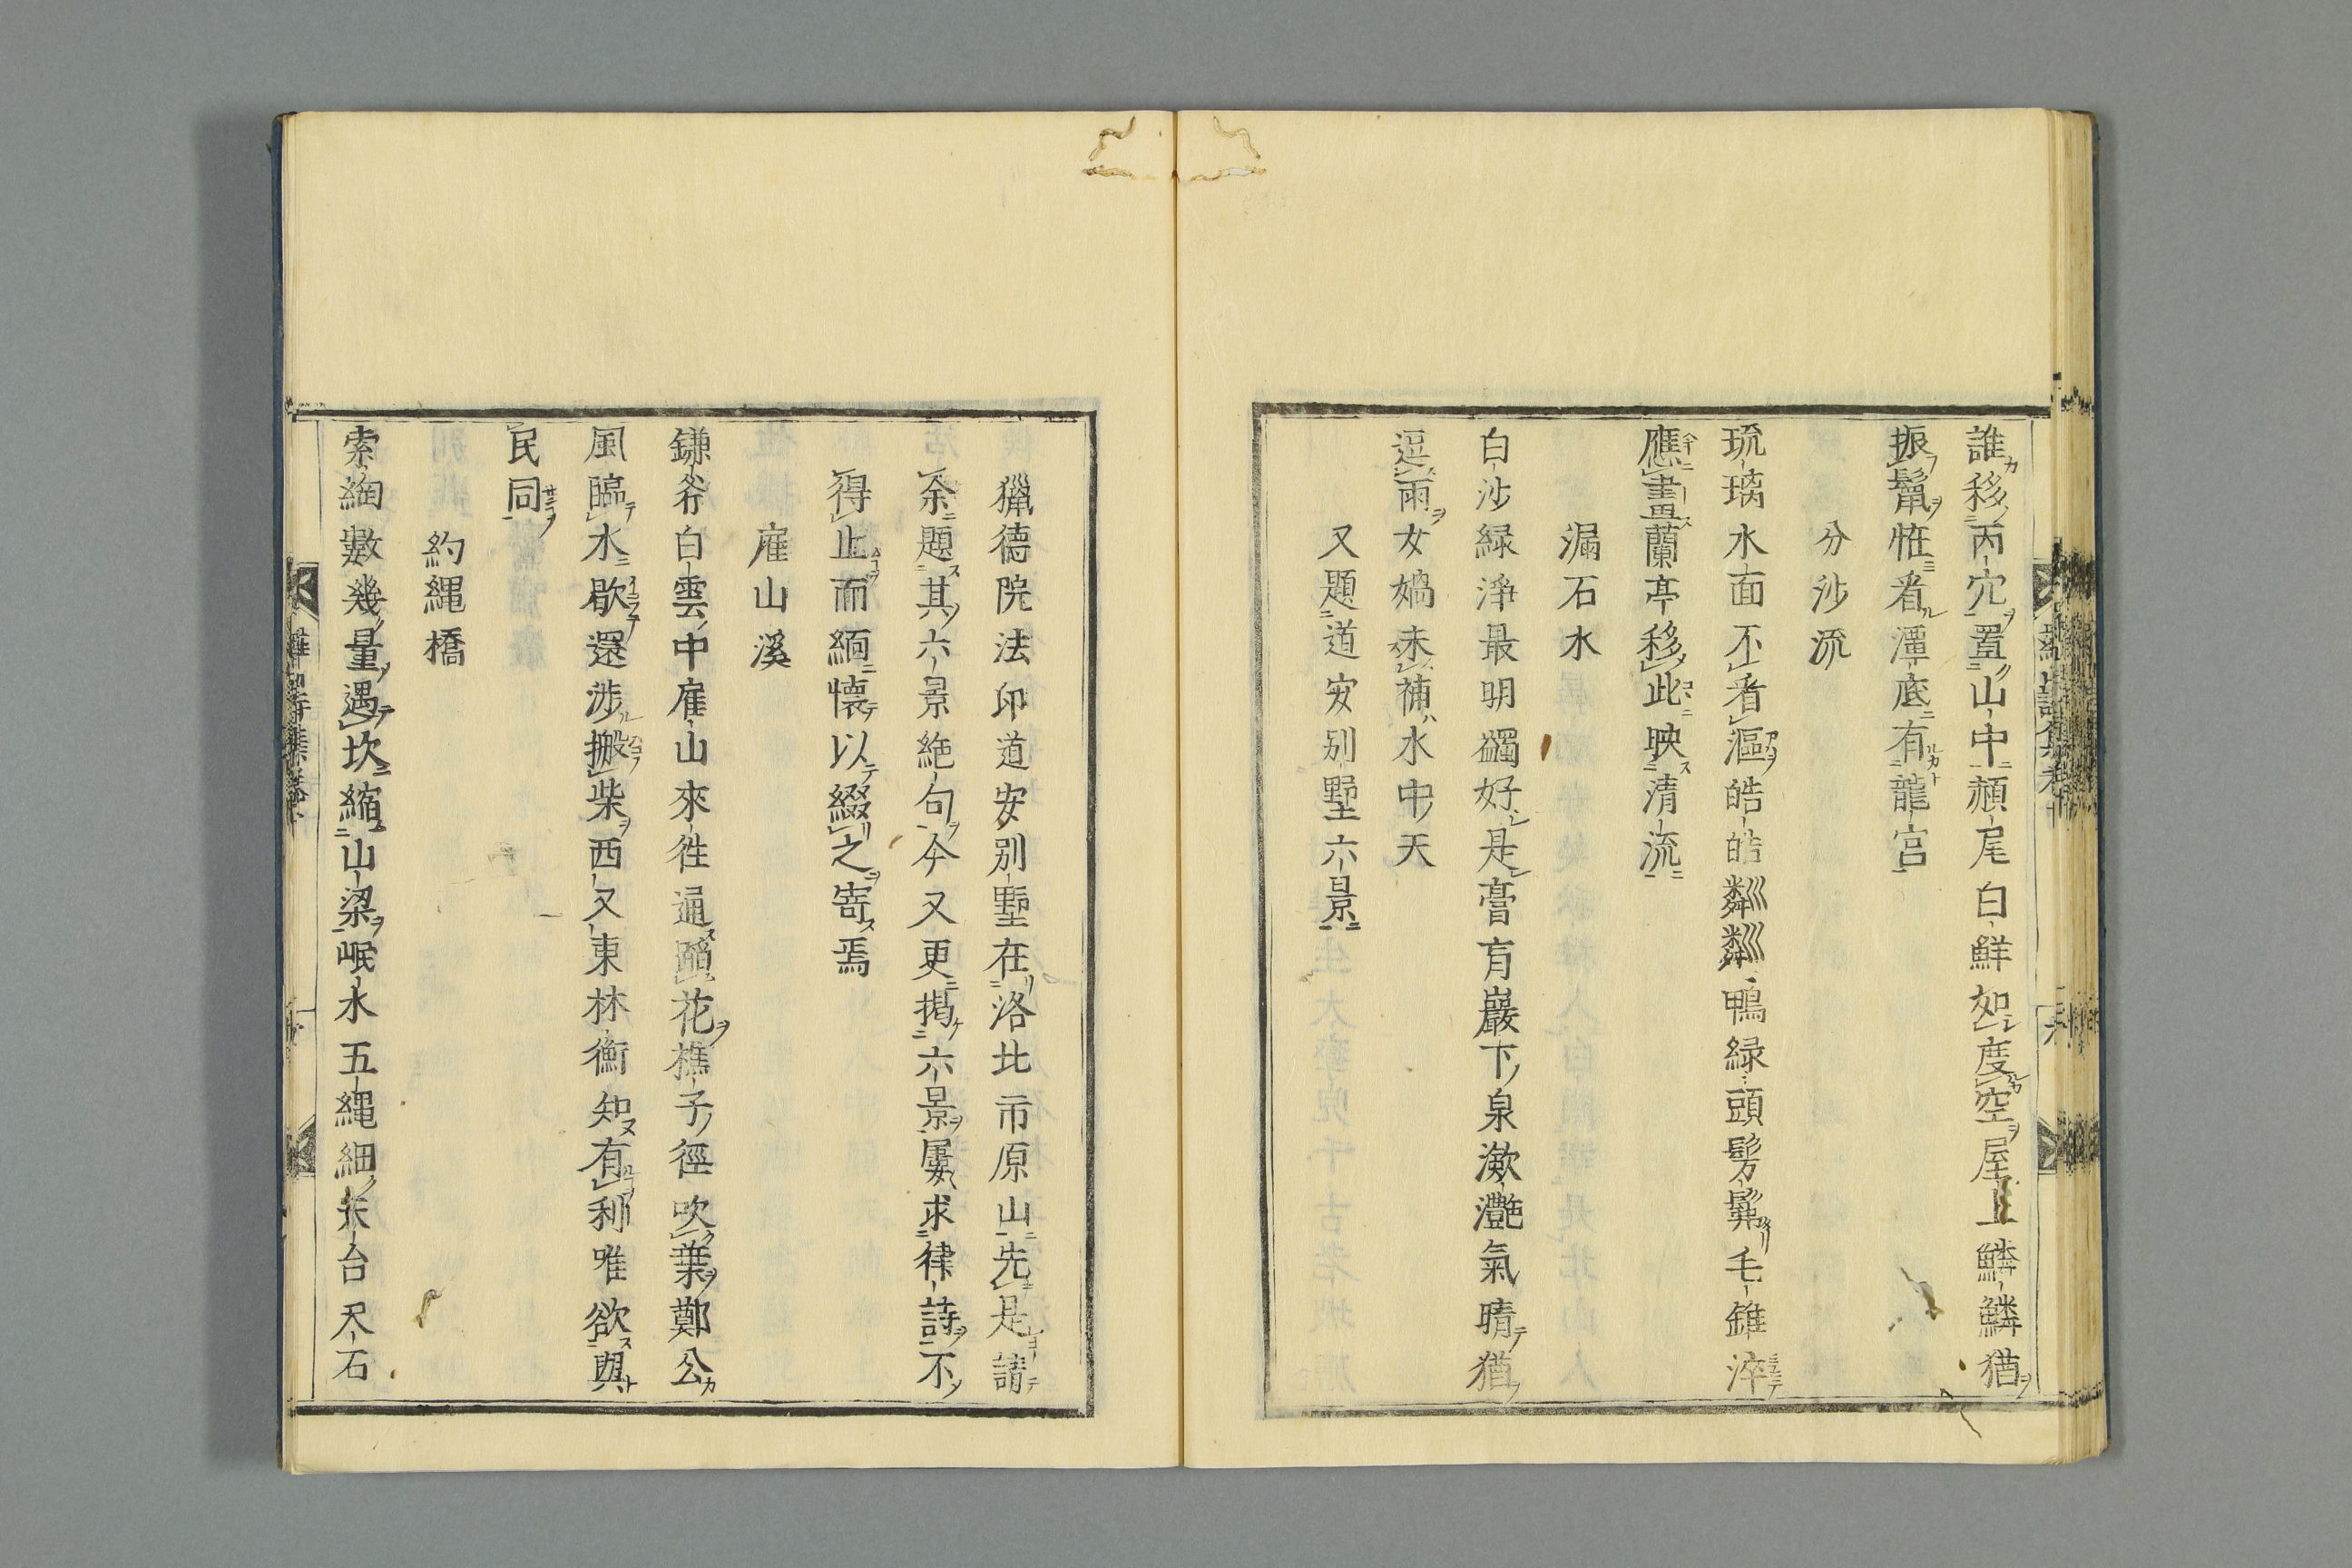 誰移丙穴置山中頳尾白鮮如度空屋上鱗鱗猶
振鬐恠看潭底有龍宮
分沙流
琉璃水面不看漚皓皓粼粼鴨緑頭髣髴毛錐淬
應畫蘭亭移此映清流
漏石水
白沙緑淨最明蠲好是膏肓巖下泉瀲灧氣晴猶
逗雨女媧未補水中天
又題道安别墅六景
獵德院法印道安别墅在洛北市原山先是請
余題其六景絶句今又更揭六景屢求律詩不
得止而緬懷以綴之寄焉
雇山溪
鎌斧白雲中雇山來徃通踏花樵子徑吹葉鄭公
風臨水歇還渉搬柴西又東林衡知有利唯欲與
民同
約縄橋
索綯數幾量遇坎縮山梁岷水五縄細天台尺石